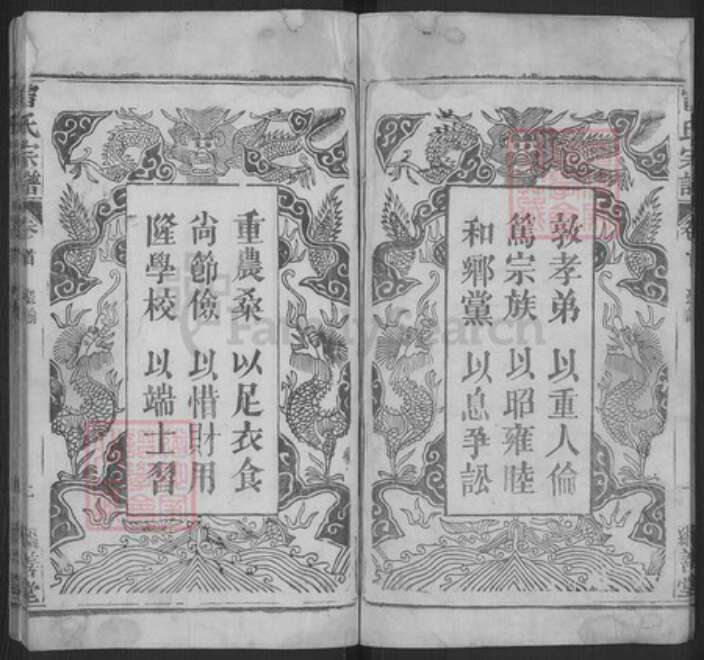 敦孝弟以重人倫
篤宗族以昭雍睦
和鄉黨以息爭訟
重農桑以足衣食
尚節儉以惜財用
隆學校以端士習
氏宗譜
卷首
善堂
FamilySearch